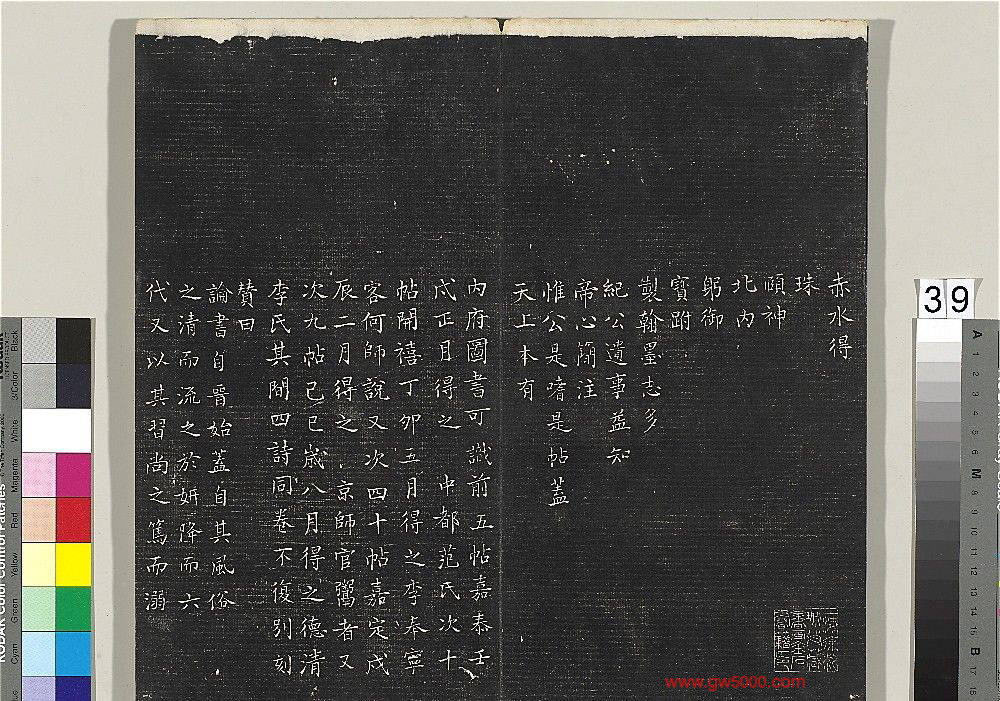 赤水得
珠
頤神
北内
躬御
寳跗
製翰墨志多
紀公遺事益知
帝心簡注
惟公是嗜是帖盖
天上本有
内府圖書可識前五帖嘉泰壬
戌正月得之中都范氏次十
帖開禧丁夘五月得之李奉寧
客何師說又次四十帖嘉定戊
辰二月得之京師官鬻者又
次九帖己巳歲八月得之德清
李氏其間四詩同卷不復别刻
贊曰
論書自晉始蓋自其風俗
之清而流之於妍降而六
代又以其習尚之篤而溺
39
www.gw5000.com
KODAK Color Control Patches
Blue
Cyan
Green
Yellow
Red
Magenta
White
3/Color
Black
A
1
2
3
4
5
6
M
8
9
10
11
12
13
14
15
B
17
18